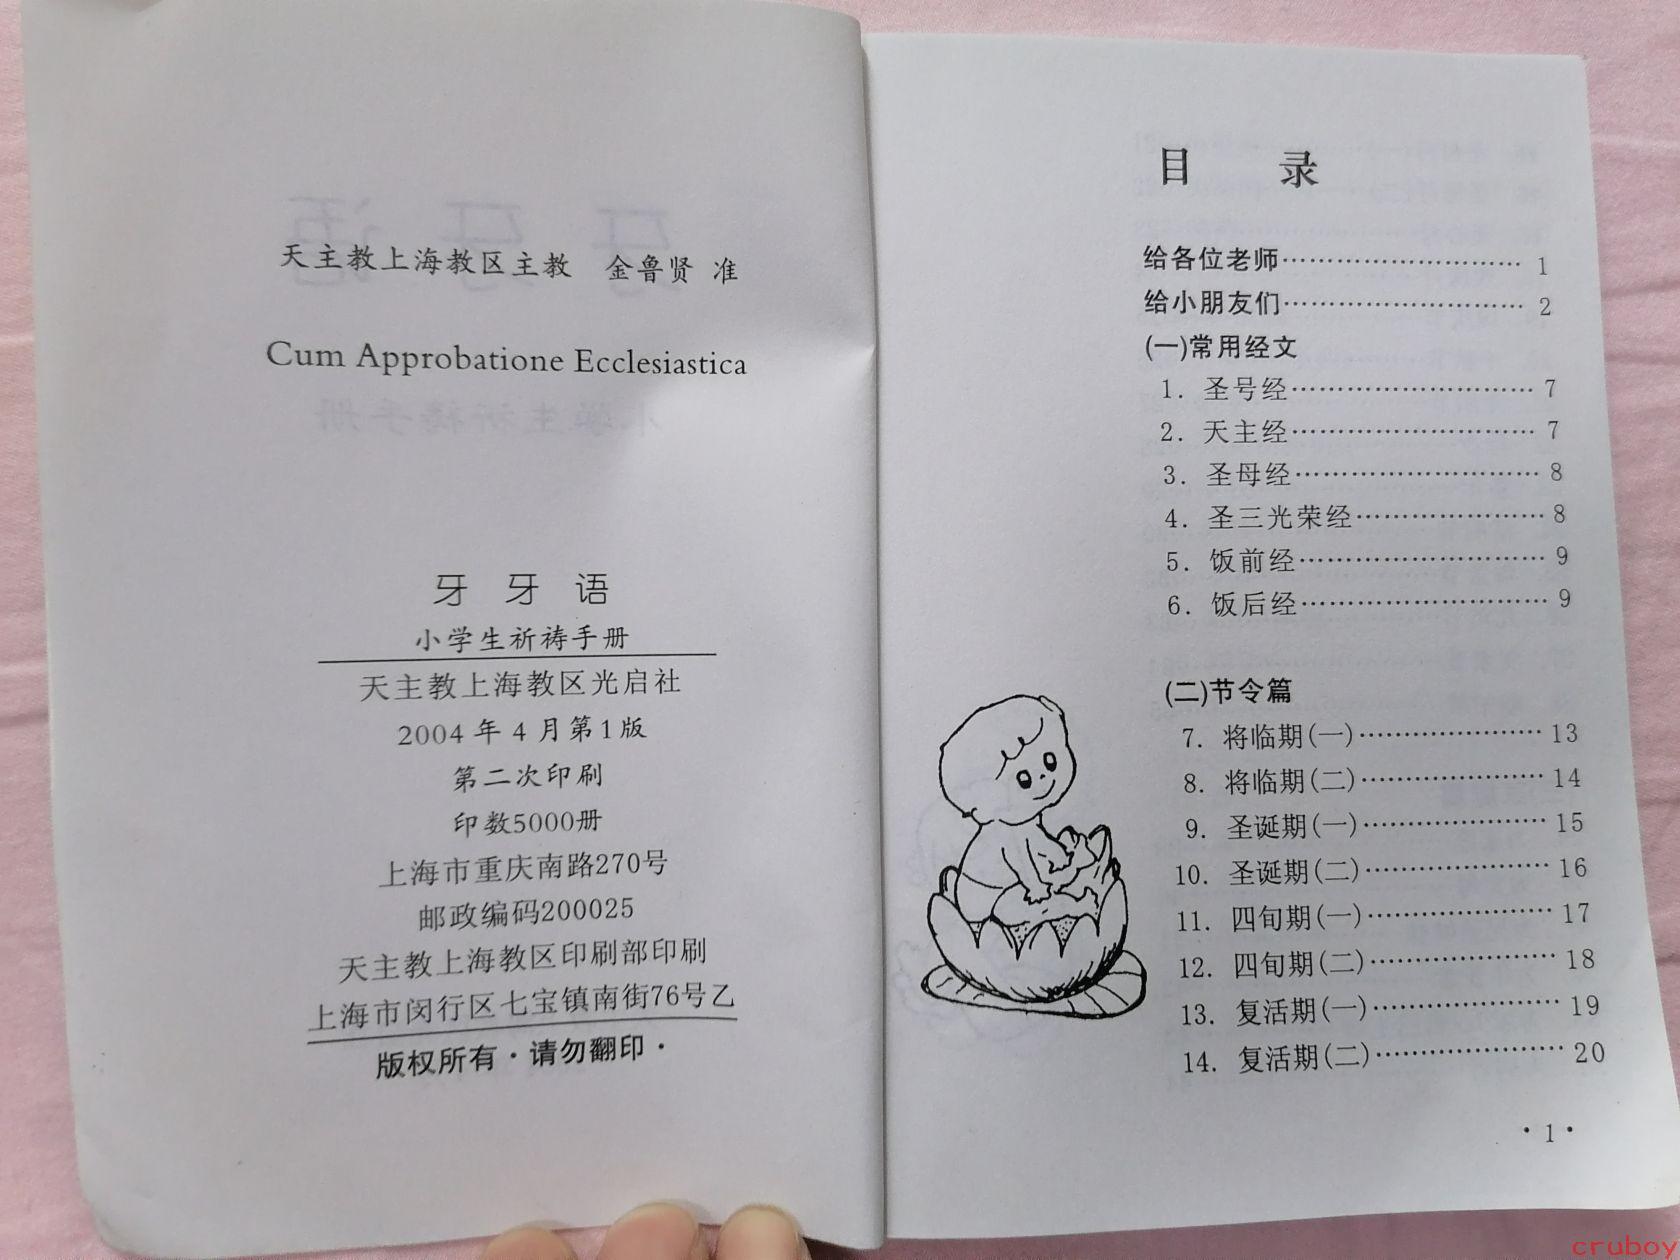 天主教上海教区主教 金鲁贤 准
Cum Approbatione Ecclesiastica
牙 牙 语
小学生祈祷手册
天主教上海教区光启社
2004年4月第1版
第二次印刷
印数5000册
上海市重庆南路270号
邮政编码200025
天主教上海教区印刷部印刷
上海市闵行区七宝镇南街76号乙
版权所有·请勿翻印·
目 录
给各位老师………………………… 1
给小朋友们………………………… 2
(一)常用经文
1. 圣号经………………………… 7
2. 天主经………………………… 7
3. 圣母经………………………… 8
4. 圣三光荣经…………………… 8
5. 饭前经………………………… 9
6. 饭后经………………………… 9
(二)节令篇
7. 将临期(一)………………… 13
8. 将临期(二)………………… 14
9. 圣诞期(一)………………… 15
10. 圣诞期(二)………………… 16
11. 四旬期(一)………………… 17
12. 四旬期(二)………………… 18
13. 复活期(一)………………… 19
14. 复活期(二)………………… 20
·1·
cruboy